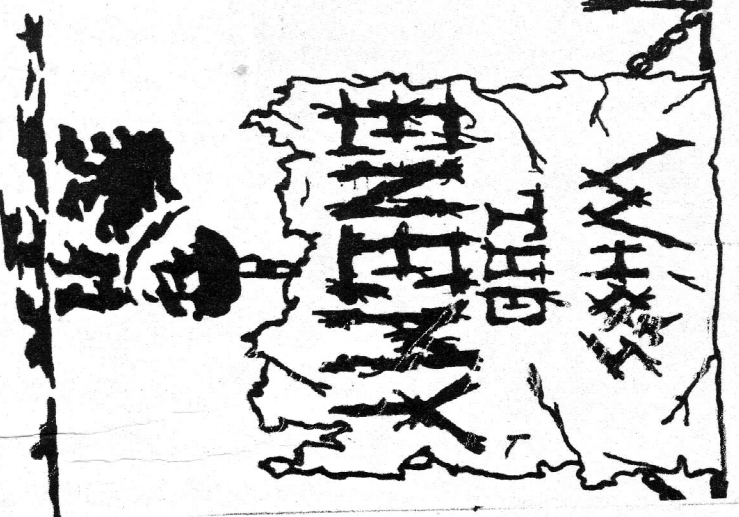 WHOS
THE
ENEMY